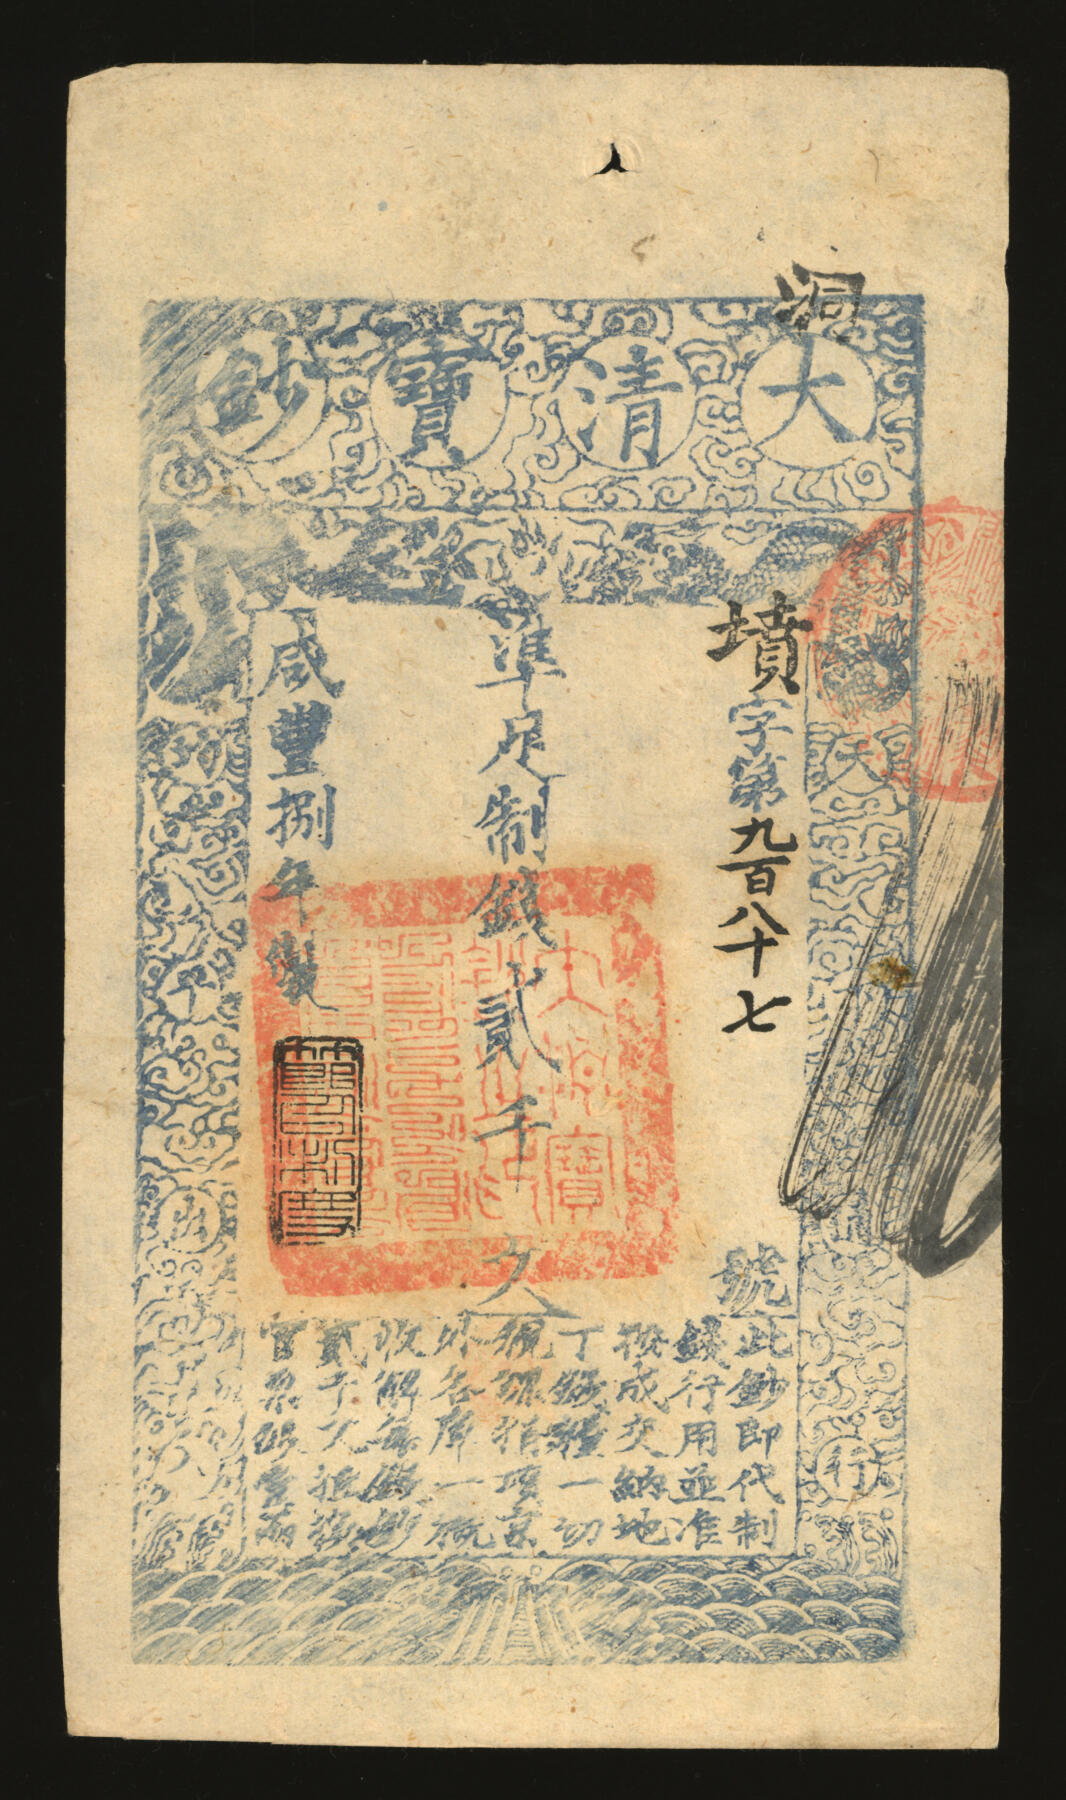 洞
大清寶鈔
墳字第九百八十七號
準足制錢貳千文
咸豐捌年製
此鈔即代制
錢行用並准
按成交納地
丁錢糧一切
稅課捐項京
外各庫一概
收解每錢鈔
貳千文抵換
官票銀壹兩
天
行
平
大清寶鈔